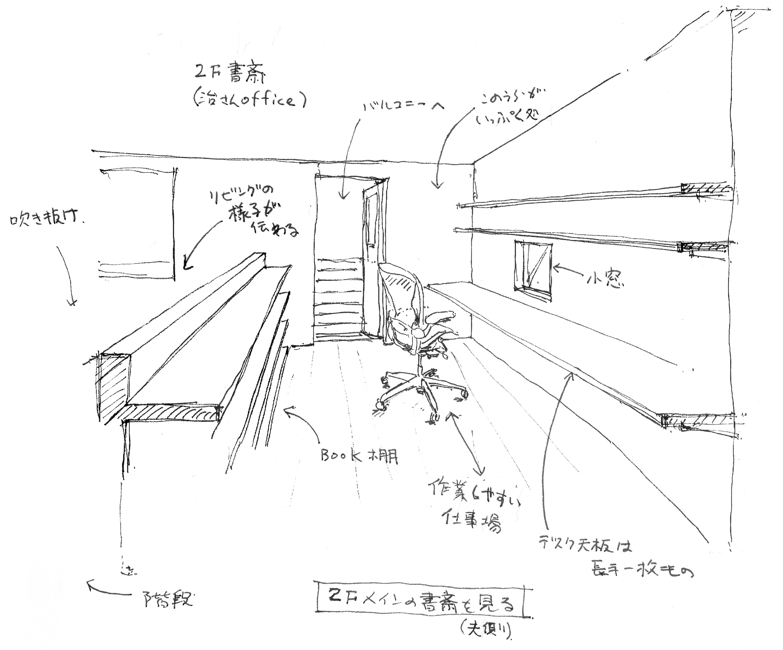 2F書斎
(治さんoffice)
バルコニーへ
このうらが
いっぷく処
吹き抜け
リビングの
様子が
伝わる
小窓
Book棚
作業しやすい
仕事場
デスク天板は
長手一枚もの
階段
2Fメインの書斎を見る
(夫側)